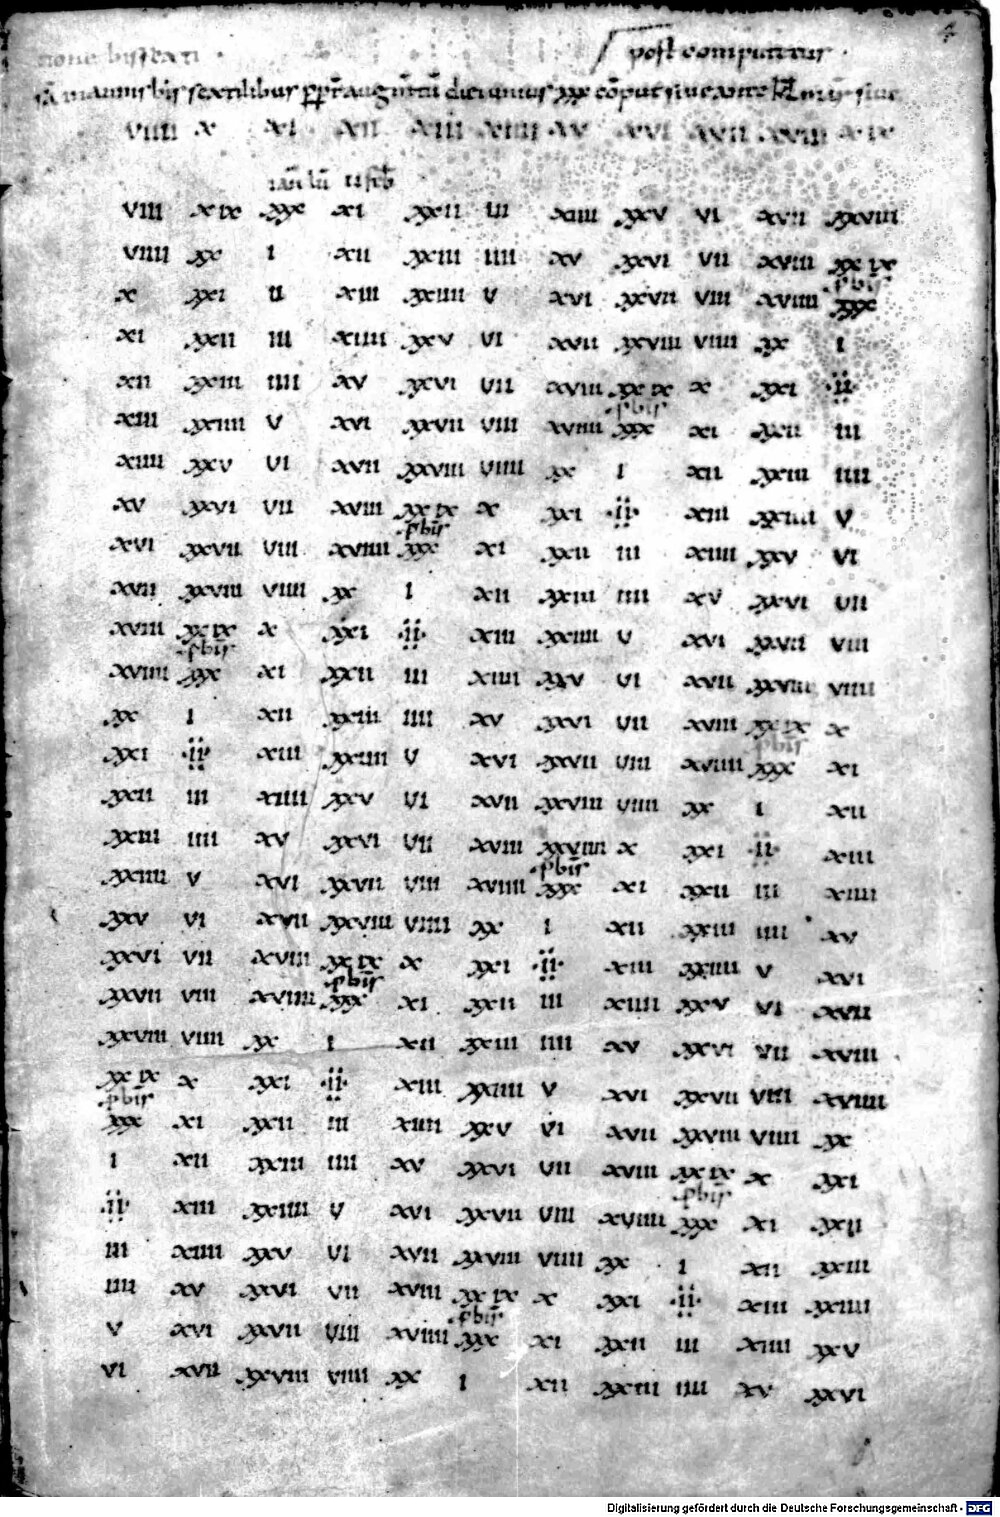 bissexti · post computetur ·
in annis bissextilibus ꝓpt̄ augm̄tū diei unius xxx cōput siue ante siue
VIIII X XI XII XIII XIIII XV XVI XVII XVIII XIX
VIII XIX XXX XI XXII III XIIII XXV VI XVII XXVIII
VIIII XX I XII XXIII IIII XV XXVI VII XVIII XXIX
pbir
X XXI II XIII XXIIII V XVI XXVII VIII XVIIII XXX
XI XXII III XIIII XXV VI XVII XXVIII VIIII XX I
XII XXIII IIII XV XXVI VII XVIII XXIX X XXI ·II·
pbir
XIII XXIIII V XVI XXVII VIII XVIIII XXX XI XXII III
XIIII XXV VI XVII XXVIII VIIII XX I XII XXIII IIII
XV XXVI VII XVIII XXIX X XXI ·II· XIII XXIIII V
pbir
XVI XXVII VIII XVIIII XXX XI XXII III XIIII XXV VI
XVII XXVIII VIIII XX I XII XXIII IIII XV XXVI VII
XVIII XXIX X XXI ·II· XIII XXIIII V XVI XXVII VIII
pbir
XVIIII XXX XI XXII III XIIII XXV VI XVII XXVIII VIIII
XX I XII XXIII IIII XV XXVI VII XVIII XXIX X
pbir
XXI ·II· XIII XXIIII V XVI XXVII VIII XVIIII XXX XI
XXII III XIIII XXV VI XVII XXVIII VIIII XX I XII
XXIII IIII XV XXVI VII XVIII XXVIIII X XXI ·II· XIII
pbir
XXIIII V XVI XXVII VIII XVIIII XXX XI XXII III XIIII
XXV VI XVII XXVIII VIIII XX I XII XXIII IIII XV
XXVI VII XVIII XXIX X XXI ·II· XIII XXIIII V XVI
pbir
XXVII VIII XVIIII XXX XI XXII III XIIII XXV VI XVII
XXVIII VIIII XX I XII XXIII IIII XV XXVI VII XVIII
XXIX X XXI ·II· XIII XXIIII V XVI XXVII VIII XVIIII
pbir
XXX XI XXII III XIIII XXV VI XVII XXVIII VIIII XX
I XII XXIII IIII XV XXVI VII XVIII XXIX X XXI
pbir
·II· XIII XXIIII V XVI XXVII VIII XVIIII XXX XI XXII
III XIIII XXV VI XVII XXVIII VIIII XX I XII XXIII
IIII XV XXVI VII XVIII XXIX X XXI ·II· XIII XXIIII
pbir
V XVI XXVII VIII XVIIII XXX XI XXII III XIIII XXV
VI XVII XXVIII VIIII XX I XII XXIII IIII XV XXVI
Digitalisierung gefördert durch die Deutsche Forschungsgemeinschaft - DFG